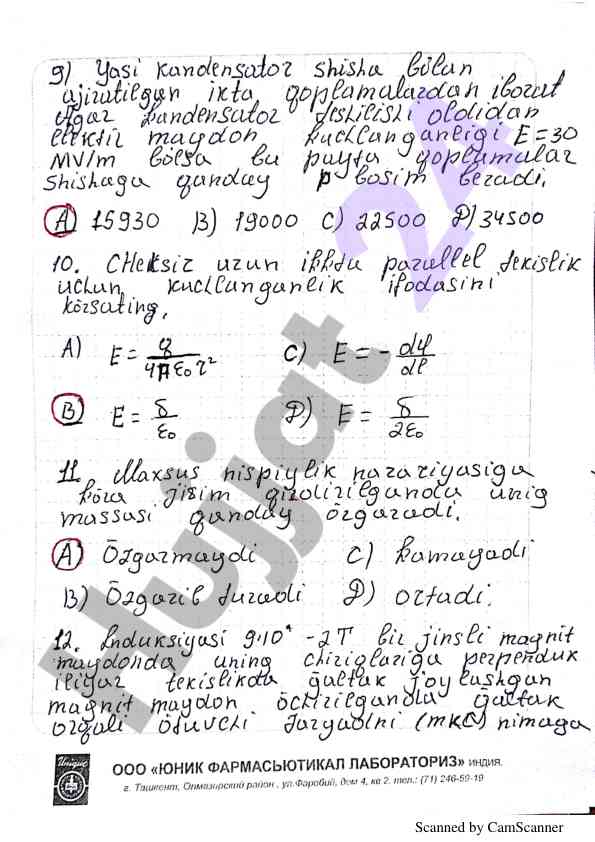 9) Yasi kandensator shisha bilan
ajiratilgan ikta qoplamalardan iborat
Agar kandensator teshilishi oldidan
elektir maydon kuchlanganligi E=30
MV/m bölsa bu paytta qoplamalar
shishaga qanday p bosim beradi.
A) 15930 B) 19000 C) 22500 D) 34500
10. CHeksiz uzun ikkta parallel tekislik
uchun kuchlanganlik ifodasini
körsating.
A) E = q/4πε₀r² C) E = - dφ/dl
B) E = δ/ε₀ D) E = δ/2ε₀
11. Maxsus nispiylik nazariyasiga
köra jisim qizdirilganda unig
massasi qanday özgaradi.
A) Özgarmaydi C) kamayadi
B) Özgarib turadi D) ortadi.
12. Induksiyasi 9·10^ -2T bir jinsli magnit
maydonda uning chiziqlariga perpenduk
ilyar tekislikda ğaltak joylashgan
magnit maydon öchirilganda ğaltak
orqali ötuvchi zaryadni (mkC) nimaga
Hujjat 24
Unique
ООО «ЮНИК ФАРМАСЬЮТИКАЛ ЛАБОРАТОРИЗ» ИНДИЯ.
г. Ташкент, Олмазарский район, ул.Фаробий, дом 4, кв 2. тел.: (71) 246-59-19
Scanned by CamScanner